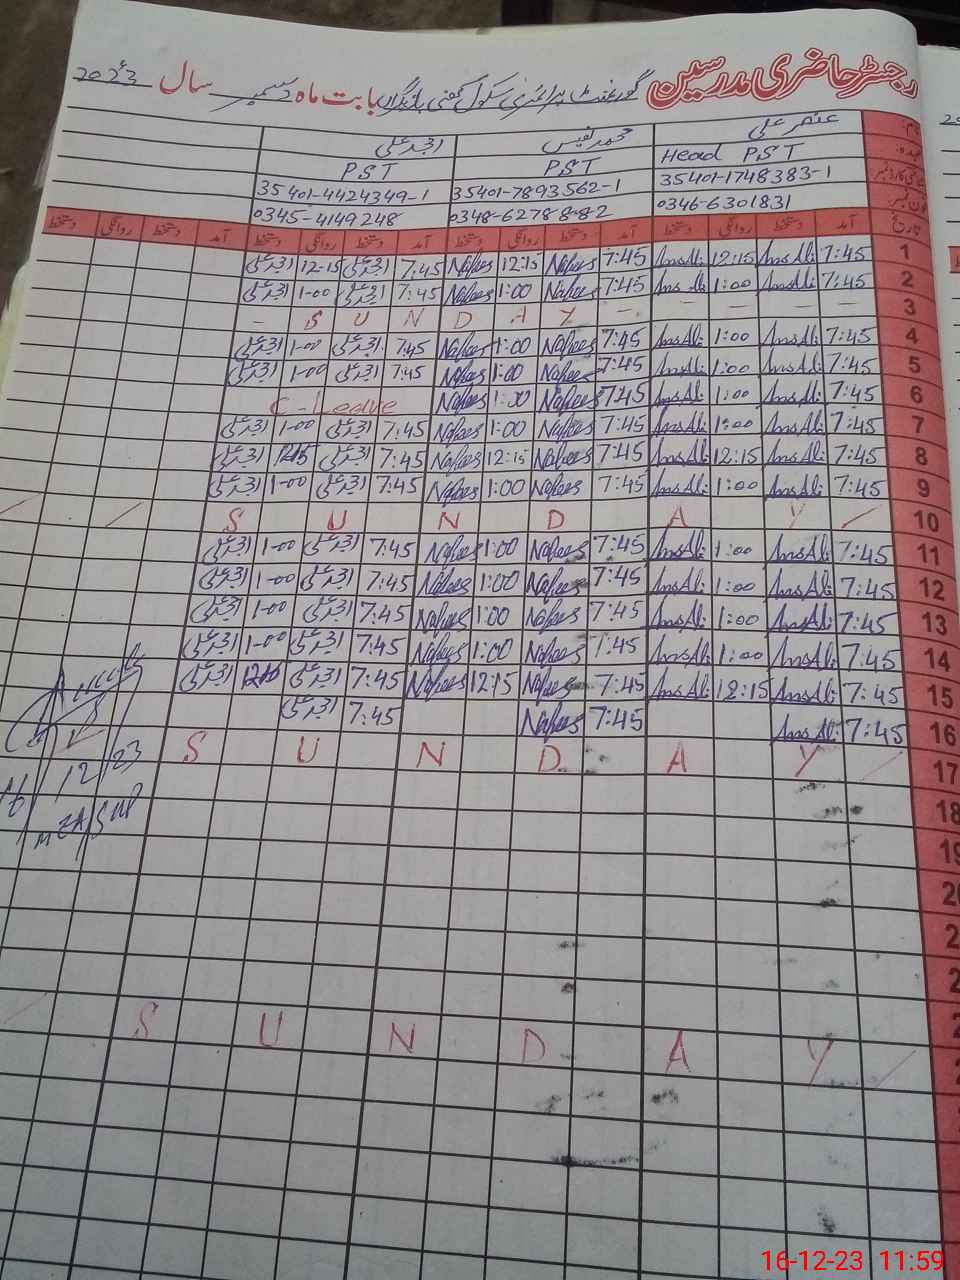 رجسٹر حاضری مدرسین گورنمنٹ پرائمری سکول بابت ماہ دسمبر سال 2023ء
نام: عنصر علی محمد نفیس امجد علی
عہدہ: Head PST PST PST
35401-1748383-1 35401-7893562-1 35401-4424349-1
فون نمبر: 0346-6301831 0348-6278882 0345-4149248
تاریخ آمد دستخط روانگی دستخط آمد دستخط روانگی دستخط آمد دستخط روانگی دستخط آمد دستخط روانگی دستخط
1 7:45 AnsAli 12:15 AnsAli 7:45 Nafees 12:15 Nafees 7:45 امجد علی 12-15 امجد علی
2 7:45 AnsAli 1:00 AnsAli 7:45 Nafees 1:00 Nafees 7:45 امجد علی 1-00 امجد علی
3 – – – – – S U N D A Y –
4 7:45 AnsAli 1:00 AnsAli 7:45 Nafees 1:00 Nafees 7:45 امجد علی 1-00 امجد علی
5 7:45 AnsAli 1:00 AnsAli 7:45 Nafees 1:00 Nafees 7:45 امجد علی 1-00 امجد علی
6 7:45 AnsAli 1:00 AnsAli 7:45 Nafees 1:00 Nafees C-Leave
7 7:45 AnsAli 1:00 AnsAli 7:45 Nafees 1:00 Nafees 7:45 امجد علی 1-00 امجد علی
8 7:45 AnsAli 12:15 AnsAli 7:45 Nafees 12:15 Nafees 7:45 امجد علی 12:15 امجد علی
9 7:45 AnsAli 1:00 AnsAli 7:45 Nafees 1:00 Nafees 7:45 امجد علی 1-00 امجد علی
10 S U N D A Y
11 7:45 AnsAli 1:00 AnsAli 7:45 Nafees 1:00 Nafees 7:45 امجد علی 1-00 امجد علی
12 7:45 AnsAli 1:00 AnsAli 7:45 Nafees 1:00 Nafees 7:45 امجد علی 1-00 امجد علی
13 7:45 AnsAli 1:00 AnsAli 7:45 Nafees 1:00 Nafees 7:45 امجد علی 1-00 امجد علی
14 7:45 AnsAli 1:00 AnsAli 7:45 Nafees 1:00 Nafees 7:45 امجد علی 1-00 امجد علی
15 7:45 AnsAli 12:15 AnsAli 7:45 Nafees 12:15 Nafees 7:45 امجد علی امجد علی
16 7:45 AnsAli 7:45 Nafees 7:45 امجد علی
17 S U N D A Y
16/12/23
18
19
S U N D A Y
16-12-23 11:59